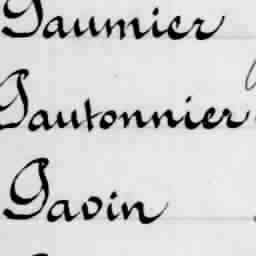 Paumier
Pautonnier
Pavin